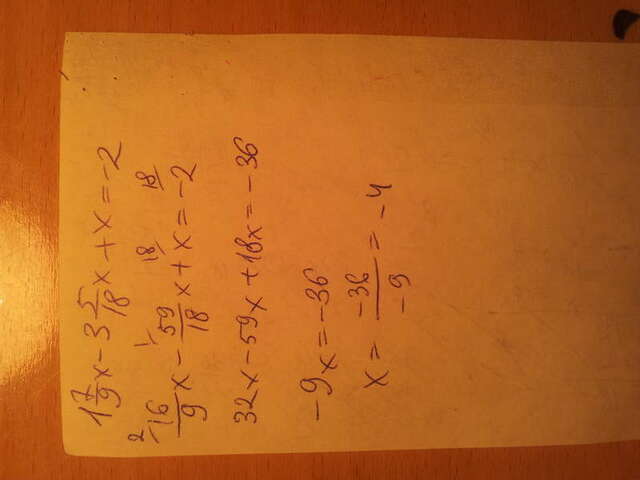 1 7/9 x - 3 5/18 x + x = -2
2/ 16/9 x - 1/ 59/18 x + 18/ x = 18/ -2
32x - 59x + 18x = -36
-9x = -36
x = -36/-9 = -4